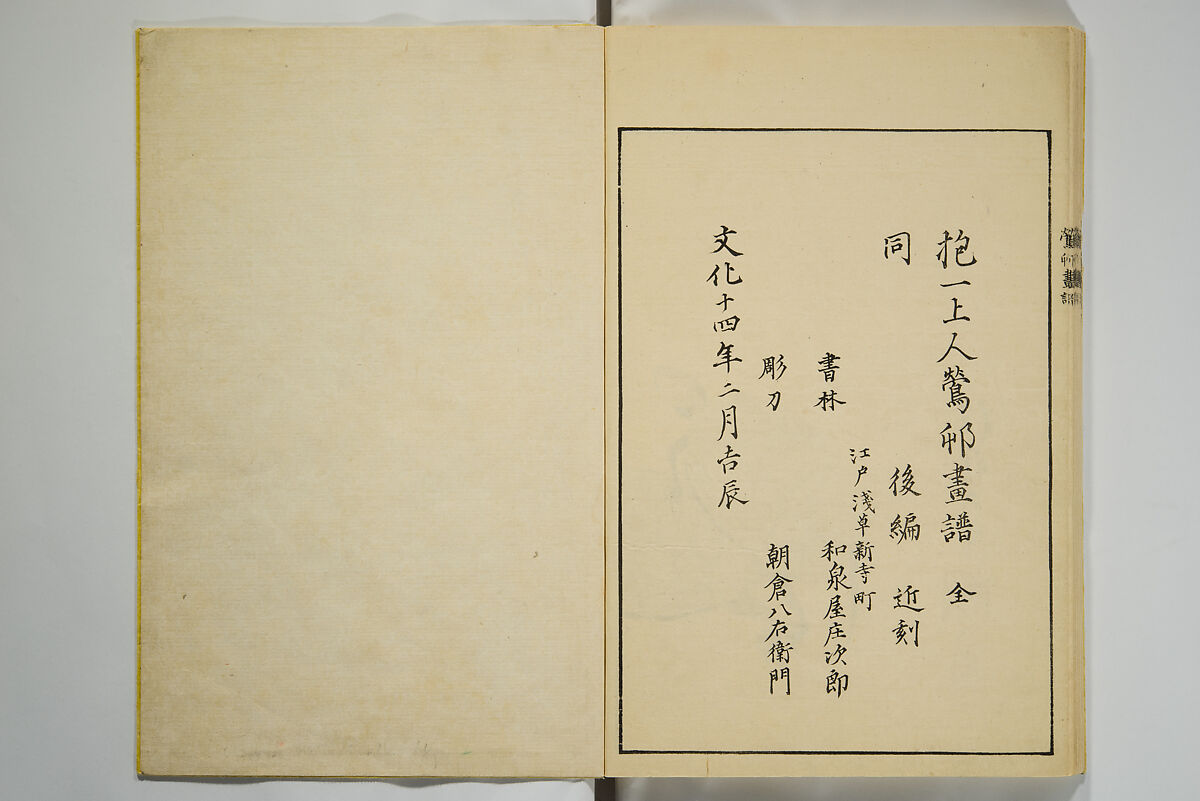 抱一上人鶯邨畫譜 全
同 後編 近刻
江戸淺草新寺町
書林 和泉屋庄次郎
彫刀 朝倉八右衛門
文化十四年二月吉辰